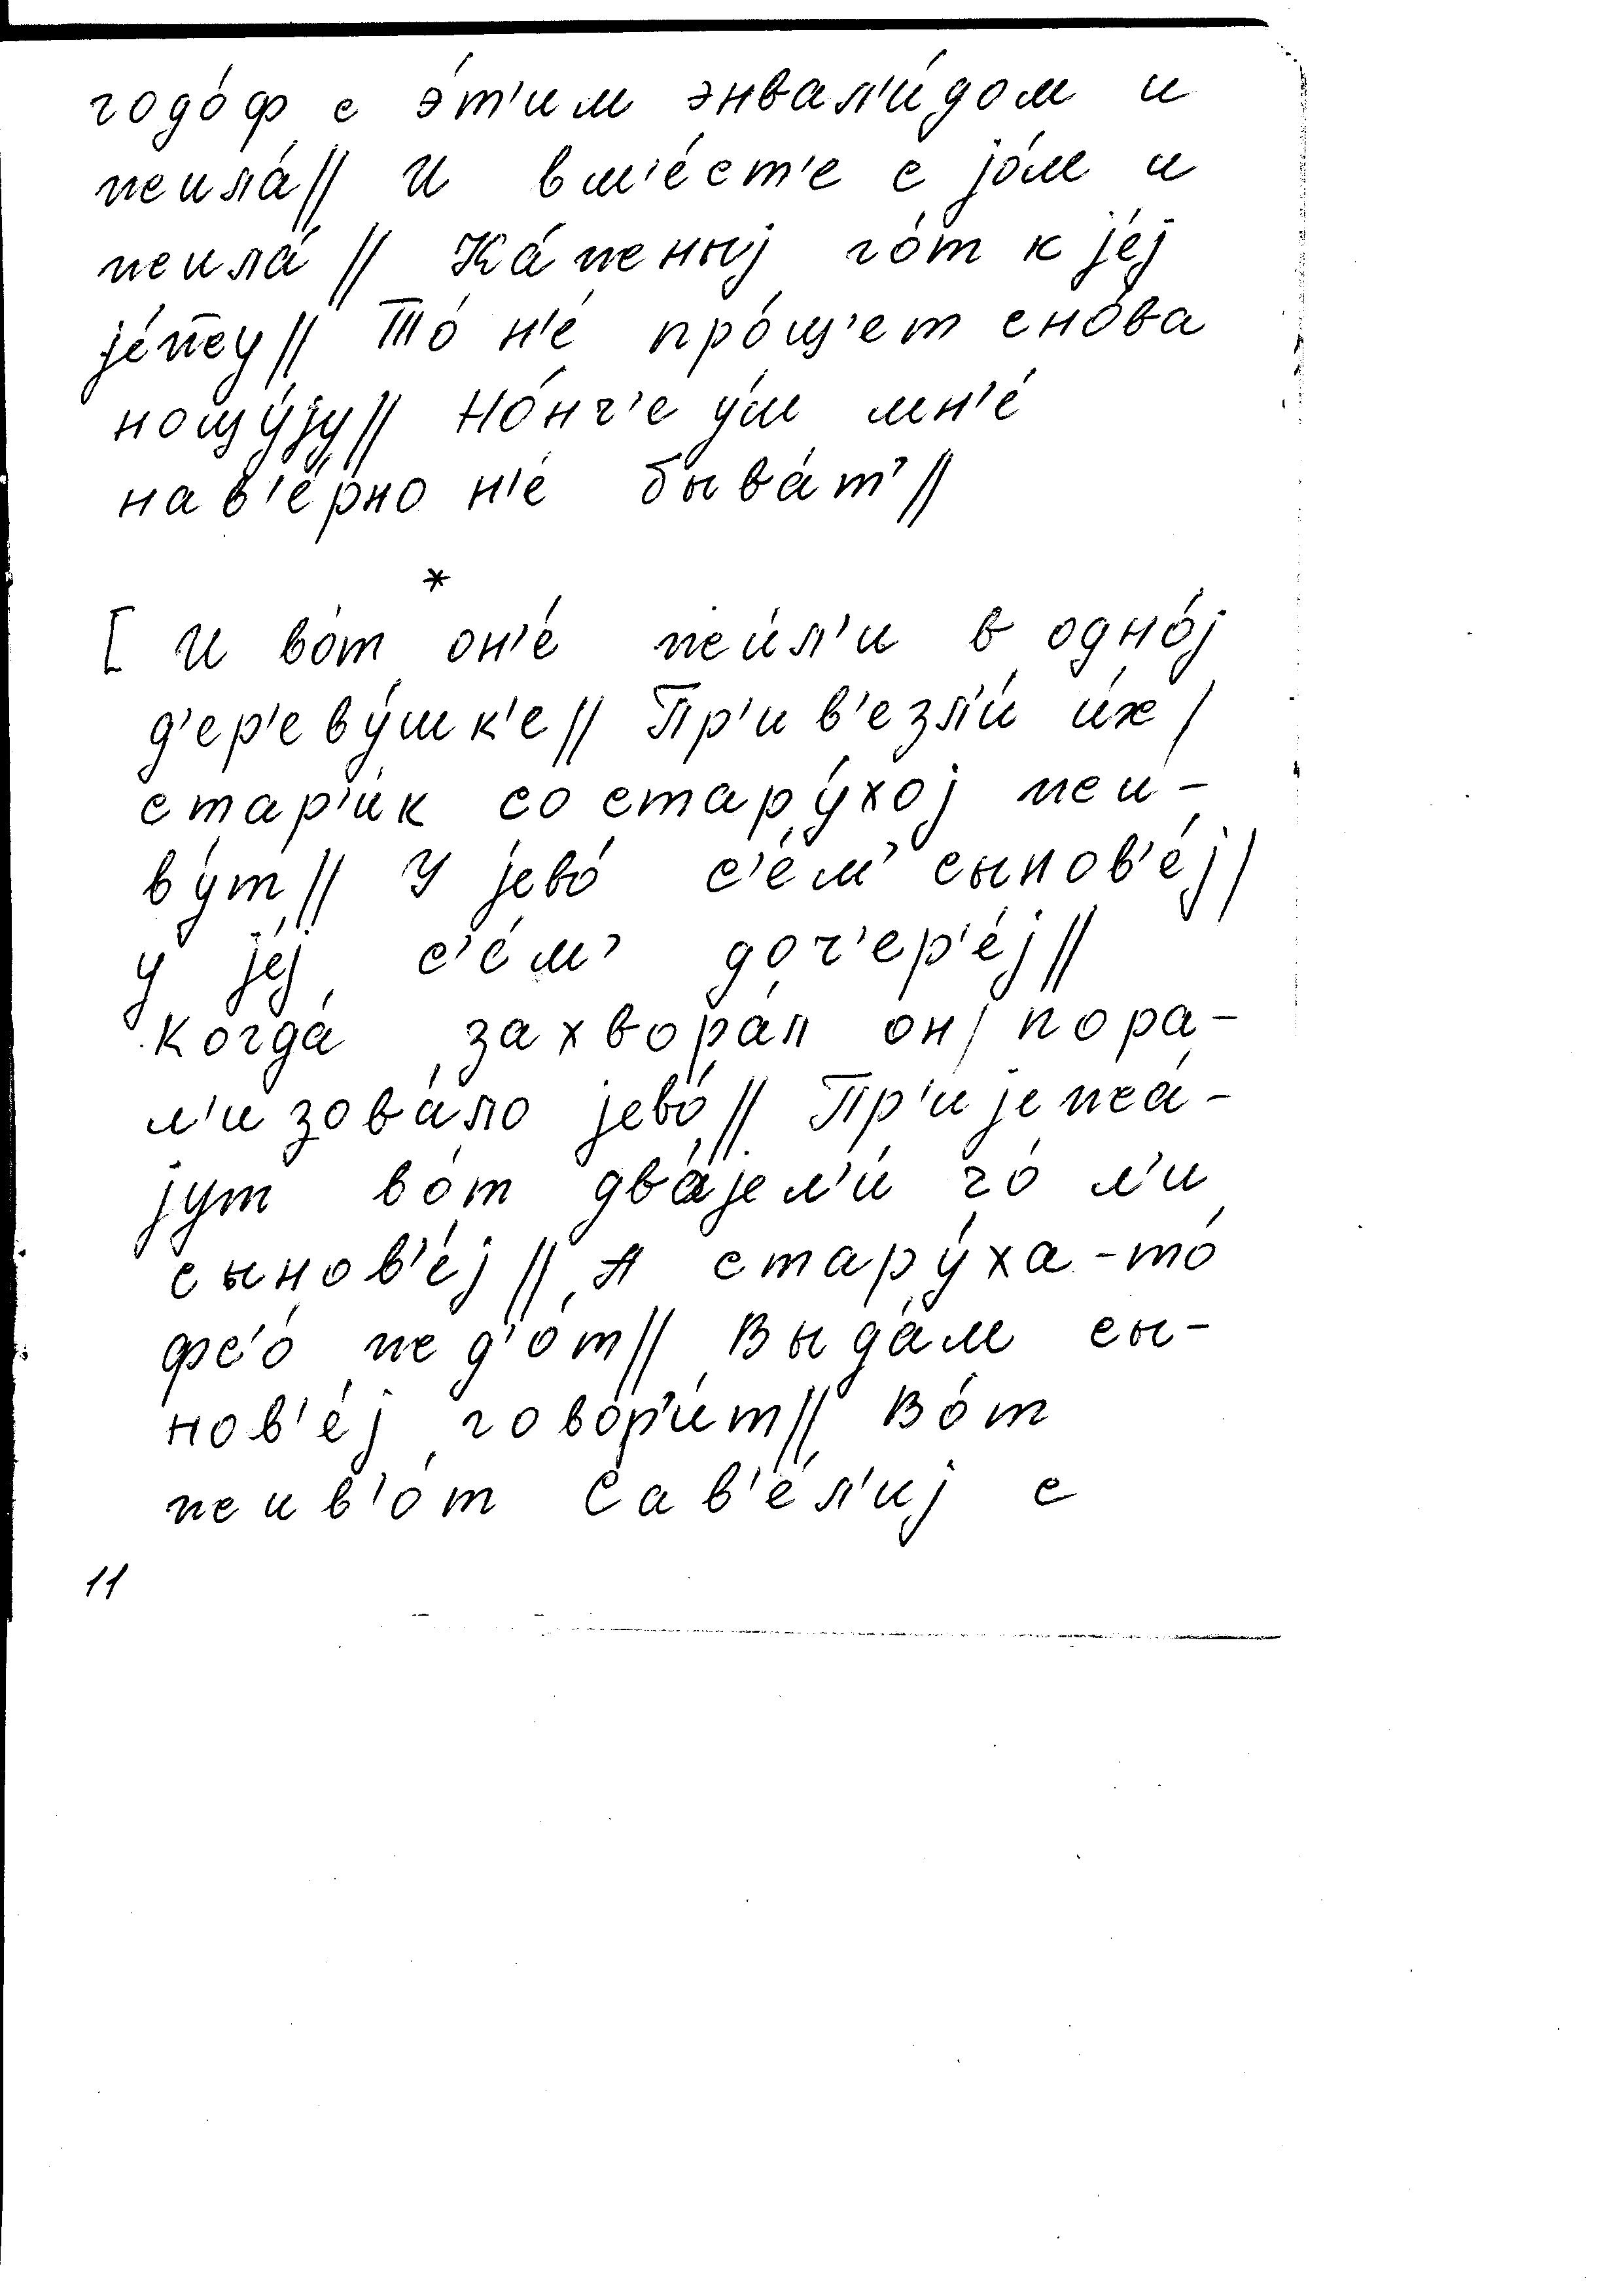 годо́ф с э́т'им энвал'и́дом и
жила́// И вм'е́ст'е с јо́м и
жила́ // Ка́жныј го́т к је́ј
је́жжу// То́ н'е́ про́щ'ет сно́ва
ношу́ју// Но́нч'е у́ш мн'е́
нав'е́рно н'е́ быва́т'//
*
[ И во́т он'е́ жи́л'и в одно́ј
д'ер'еву́шк'е// Пр'ив'езл'и́ и́х /
стар'и́к со стару́хој жи-
ву́т// У јево́ с'е́м' сынов'е́ј/
у је́ј с'е́м' доч'ер'е́ј//
Когда́ захвора́л он/ пора-
л'изова́ло јево́// Пр'ијежа́-
јут во́т два́јел'и́ чо́ л'и
сынов'е́ј// А стару́ха-то́
фс'о́ жд'о́т// Выда́м сы-
нов'е́ј говор'и́т// Во́т
жив'о́т Сав'е́л'иј с
11